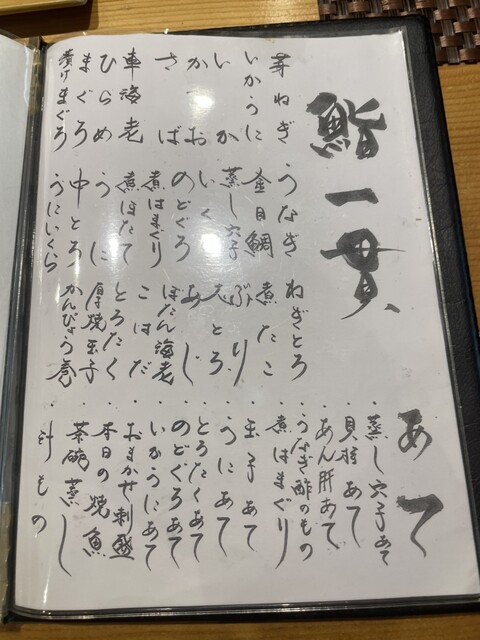 鮨一貫
芽ねぎ
いか・うに
いか
かつお
さば
車海老
ひらめ
まぐろ
漬けまぐろ
うなぎ
金目鯛
蒸し穴子
いくら
のどぐろ
煮はまぐり
煮ほたて
うに
中とろ
うにいくら
ねぎとろ
煮たこ
ぶり
大とろ
あじ
ぼたん海老
こはだ
とろたく
厚焼玉子
かんぴょう巻
あて
・蒸し穴子あて
・貝柱あて
・あん肝あて
・うなぎ酢のもの
・煮はまぐり
・玉子あて
・うにあて
・とろたくあて
・のどぐろあて
・いかうにあて
・おまかせ刺盛
・本日の焼魚
・茶碗蒸し
・汁もの